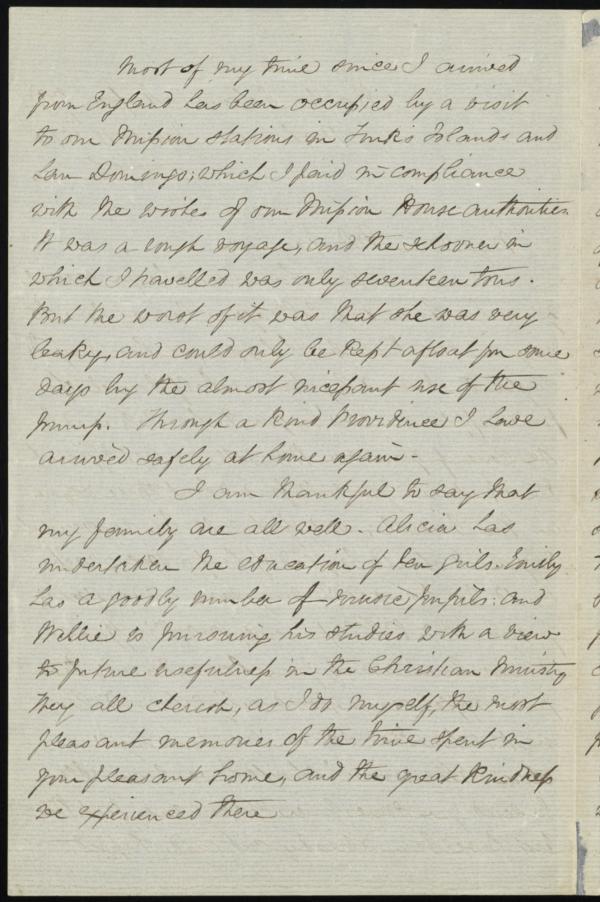 Most of my time since I arrived
from England has been occupied by a visit
to our Mission Stations in Turk's Islands and
San Domingo; which I paid in compliance
with the wishes of our Mission House authorities.
It was a rough voyage, and the schooner in
which I travelled was only seventeen tons.
But the worst of it was that she was very
leaky, and could only be kept afloat for some
days by the almost incessant use of the
pump. Through a kind Providence I have
arrived safely at home again.
I am thankful to say that
my family are all well. Alicia has
undertaken the education of ten girls. Emily
has a goodly number of music pupils: and
Willie is pursuing his studies with a view
to future usefulness in the Christian Ministry
They all cherish, as I do myself, the most
pleasant memories of the time spent in
your pleasant home, and the great kindness
we experienced there